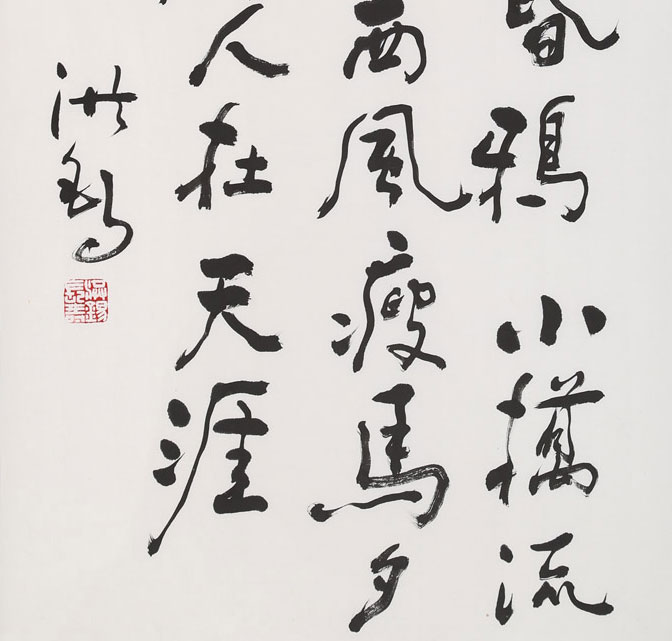 昏鴉小橋流
西風瘦馬夕
人在天涯
洪錫